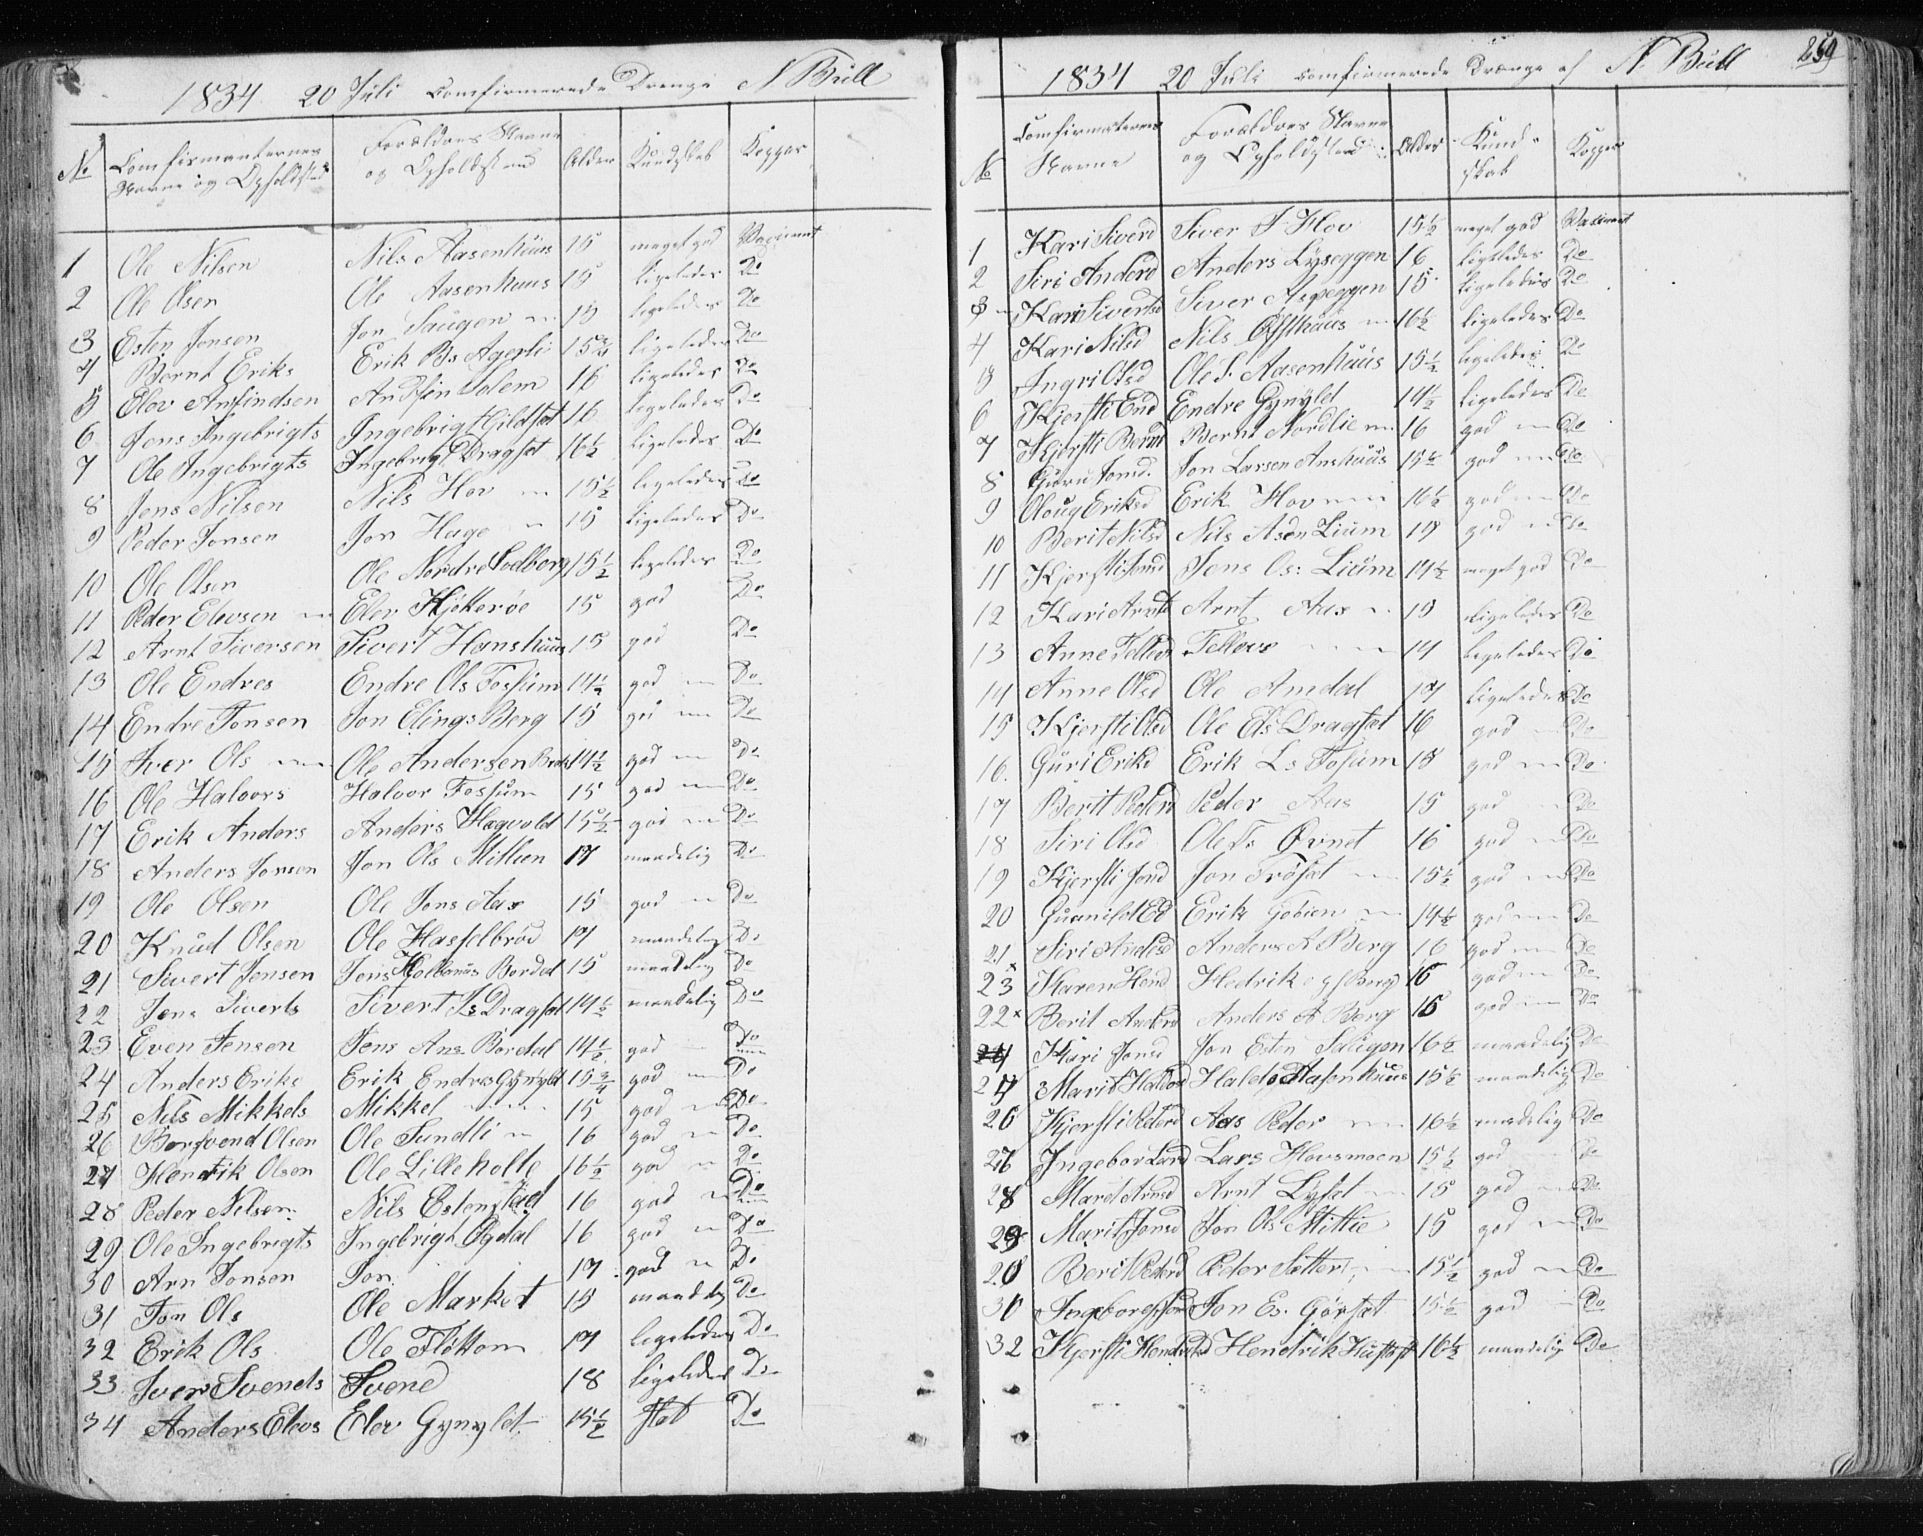 1834 20 Juli Comfirmerede Drenge N Büll
No Comfirmanternes Navne og Opholdsted Forældres Navne og Opholdsted Alder Kundskab Kopper
1 Ole Nilsen Nils Aasenhuus 15 meget god Vaxineret
2 Ole Olsen Ole Aasenhuus 15 ligeledes Do
3 Esten Jonsen Jon Saugen 15 ligeledes Do
4 Bernt Eriks Erik Bs Agerlie 15 3/4 ligeledes Do
5 Elov Anfindsen Andfin Solem 16 ligeledes Do
6 Jens Ingebrigts Ingebrigt Gildset 16 ligeledes Do
7 Ole Ingebrigts Ingebrigt Dragset 16½ ligeledes Do
8 Jens Nilsen Nils Hov 15½ ligeledes Do
9 Peder Jonsen Jon Hage 15 ligeledes Do
10 Ole Olsen Ole Nordre Sodberg 15½ ligeledes Do
11 Peder Elevsen Elev Kjøkerøe 15 god Do
12 Arnt Siversen Sivert Hanshuus 15 god Do
13 Ole Endres Endre Ols Fossum 14½ god Do
14 Endre Jonsen Jon Elings Berg 15 god Do
15 Iver Ols Ole Andersen 14½ god Do
16 Ole Halvors Halvor Fossum 15 god Do
17 Erik Anders Anders Hagvold 15½ god Do
18 Anders Jonsen Jon Ols Mitlien 17 maadelig Do
19 Ole Olsen Ole Jons Aas 15 god Do
20 Knud Olsen Ole Hasselbrød 17 maadelig Do
21 Sivert Jensen Jens Bordal 15 maadelig Do
22 Jens Siverts Sivert Is Dragset 14½ maadelig Do
23 Even Jensen Jens Ans Bordal 14½ god Do
24 Anders Eriks Erik Endres Gynyld 15¾ god Do
25 Nils Mikkels Mikkel 15 god Do
26 Borsvend Olsen Ole Sundli 16 god Do
27 Hendrik Olsen Ole Lilleholte 16½ god Do
28 Peder Nilsen Nils Estenstad 16 god Do
29 Ole Ingebrigts Ingebrigt Øgdal 16 god Do
30 Arn Jonsen Jon 17 god Do
31 Jon Ols Ole Market 15 maadelig Do
32 Erik Ols Ole Fløttom 17 ligeledes Do
33 Iver Svends Svend 18 ligeledes Do
34 Anders Elevs Elev Gynyld 15½ slet Do
259
1834 20 Juli Comfirmerede Drenge af N. Büll
No Comfirmaternes Navne Forældres Navne og Opholdsted Alder Kundskab Kopper
1 Kari Siverd Siver S Hov 15½ meget god Vaxineret
2 Siri Anderd Anders Lyseggen 16 ligeledes Do
3 Kari Sivertsd Siver Aspeggen 15 ligeledes Do
4 Kari Nilsd Nils Østhuus 16½ ligeledes Do
5 Ingri Olsd Ole S. Aasenhuus 15½ ligeledes Do
6 Kjersti End Endre Gynyld 14½ ligeledes Do
7 Kjersti Bernt Bernt Nordlie 16 god Do
8 Guru Jonsd. Jon Larsen Anshuus 15½ god Do
9 Oloug Eriksd Erik Hov 16½ god Do
10 Berit Nilsd Nils Asen Lium 19 god Do
11 Kjersti Jensd Jens Os: Lium 14½ meget god Do
12 Kari Arnts Arnt Aas 15 ligeledes Do
13 Anne Tellevs Tellevs 14 ligeledes Do
14 Anne Olsd Ole Amdal 17 ligeledes Do
15 Kjersti Olsd Ole Es Dragset 16 god Do
16. Guri Erikd Erik Ls Fosum 15 god Do
17 Berit Pederd Peder Aas 15 god Do
18 Siri Olsd Ole Ts Øvnet 16 god Do
19 Kjersti Jond Jon Frøset 15½ god Do
20 Guanild Ed Erik Gobien 14½ god Do
21 Siri Andesd Anders A Berg 16 god Do
23 Karen Hend Hedrik Berg 16 god Do
22 Berit Anderd Anders A Berg 15 god Do
24 Kari Jonsd Jon Esten Saugen 16½ maadelig Do
Marit Haldod Haldo Aasenhuus 15½ maadelig Do
26 Kjersti Pederd Aas Peder 16½ maadelig Do
Ingebor Larsd Lars Hovsmoen 15½ god Do
28 Maret Arnsd Arnt Lyset 15 god Do
29 Marit Jonsd Jon Ols Mitlie 15 god Do
Berit Pederd Peder 15½ god Do
Ingeborg Jond Jon Es. Gørset 15½ god Do
32 Kjersti Hendrikd Hendrik 16½ maadelig Do